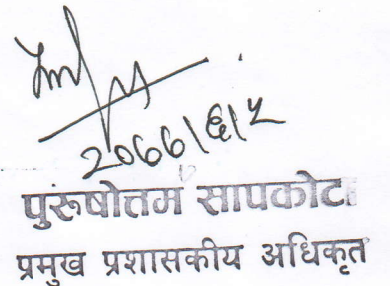 २०७७।६।५
पुरुषोत्तम सापकोटा
प्रमुख प्रशासकीय अधिकृत